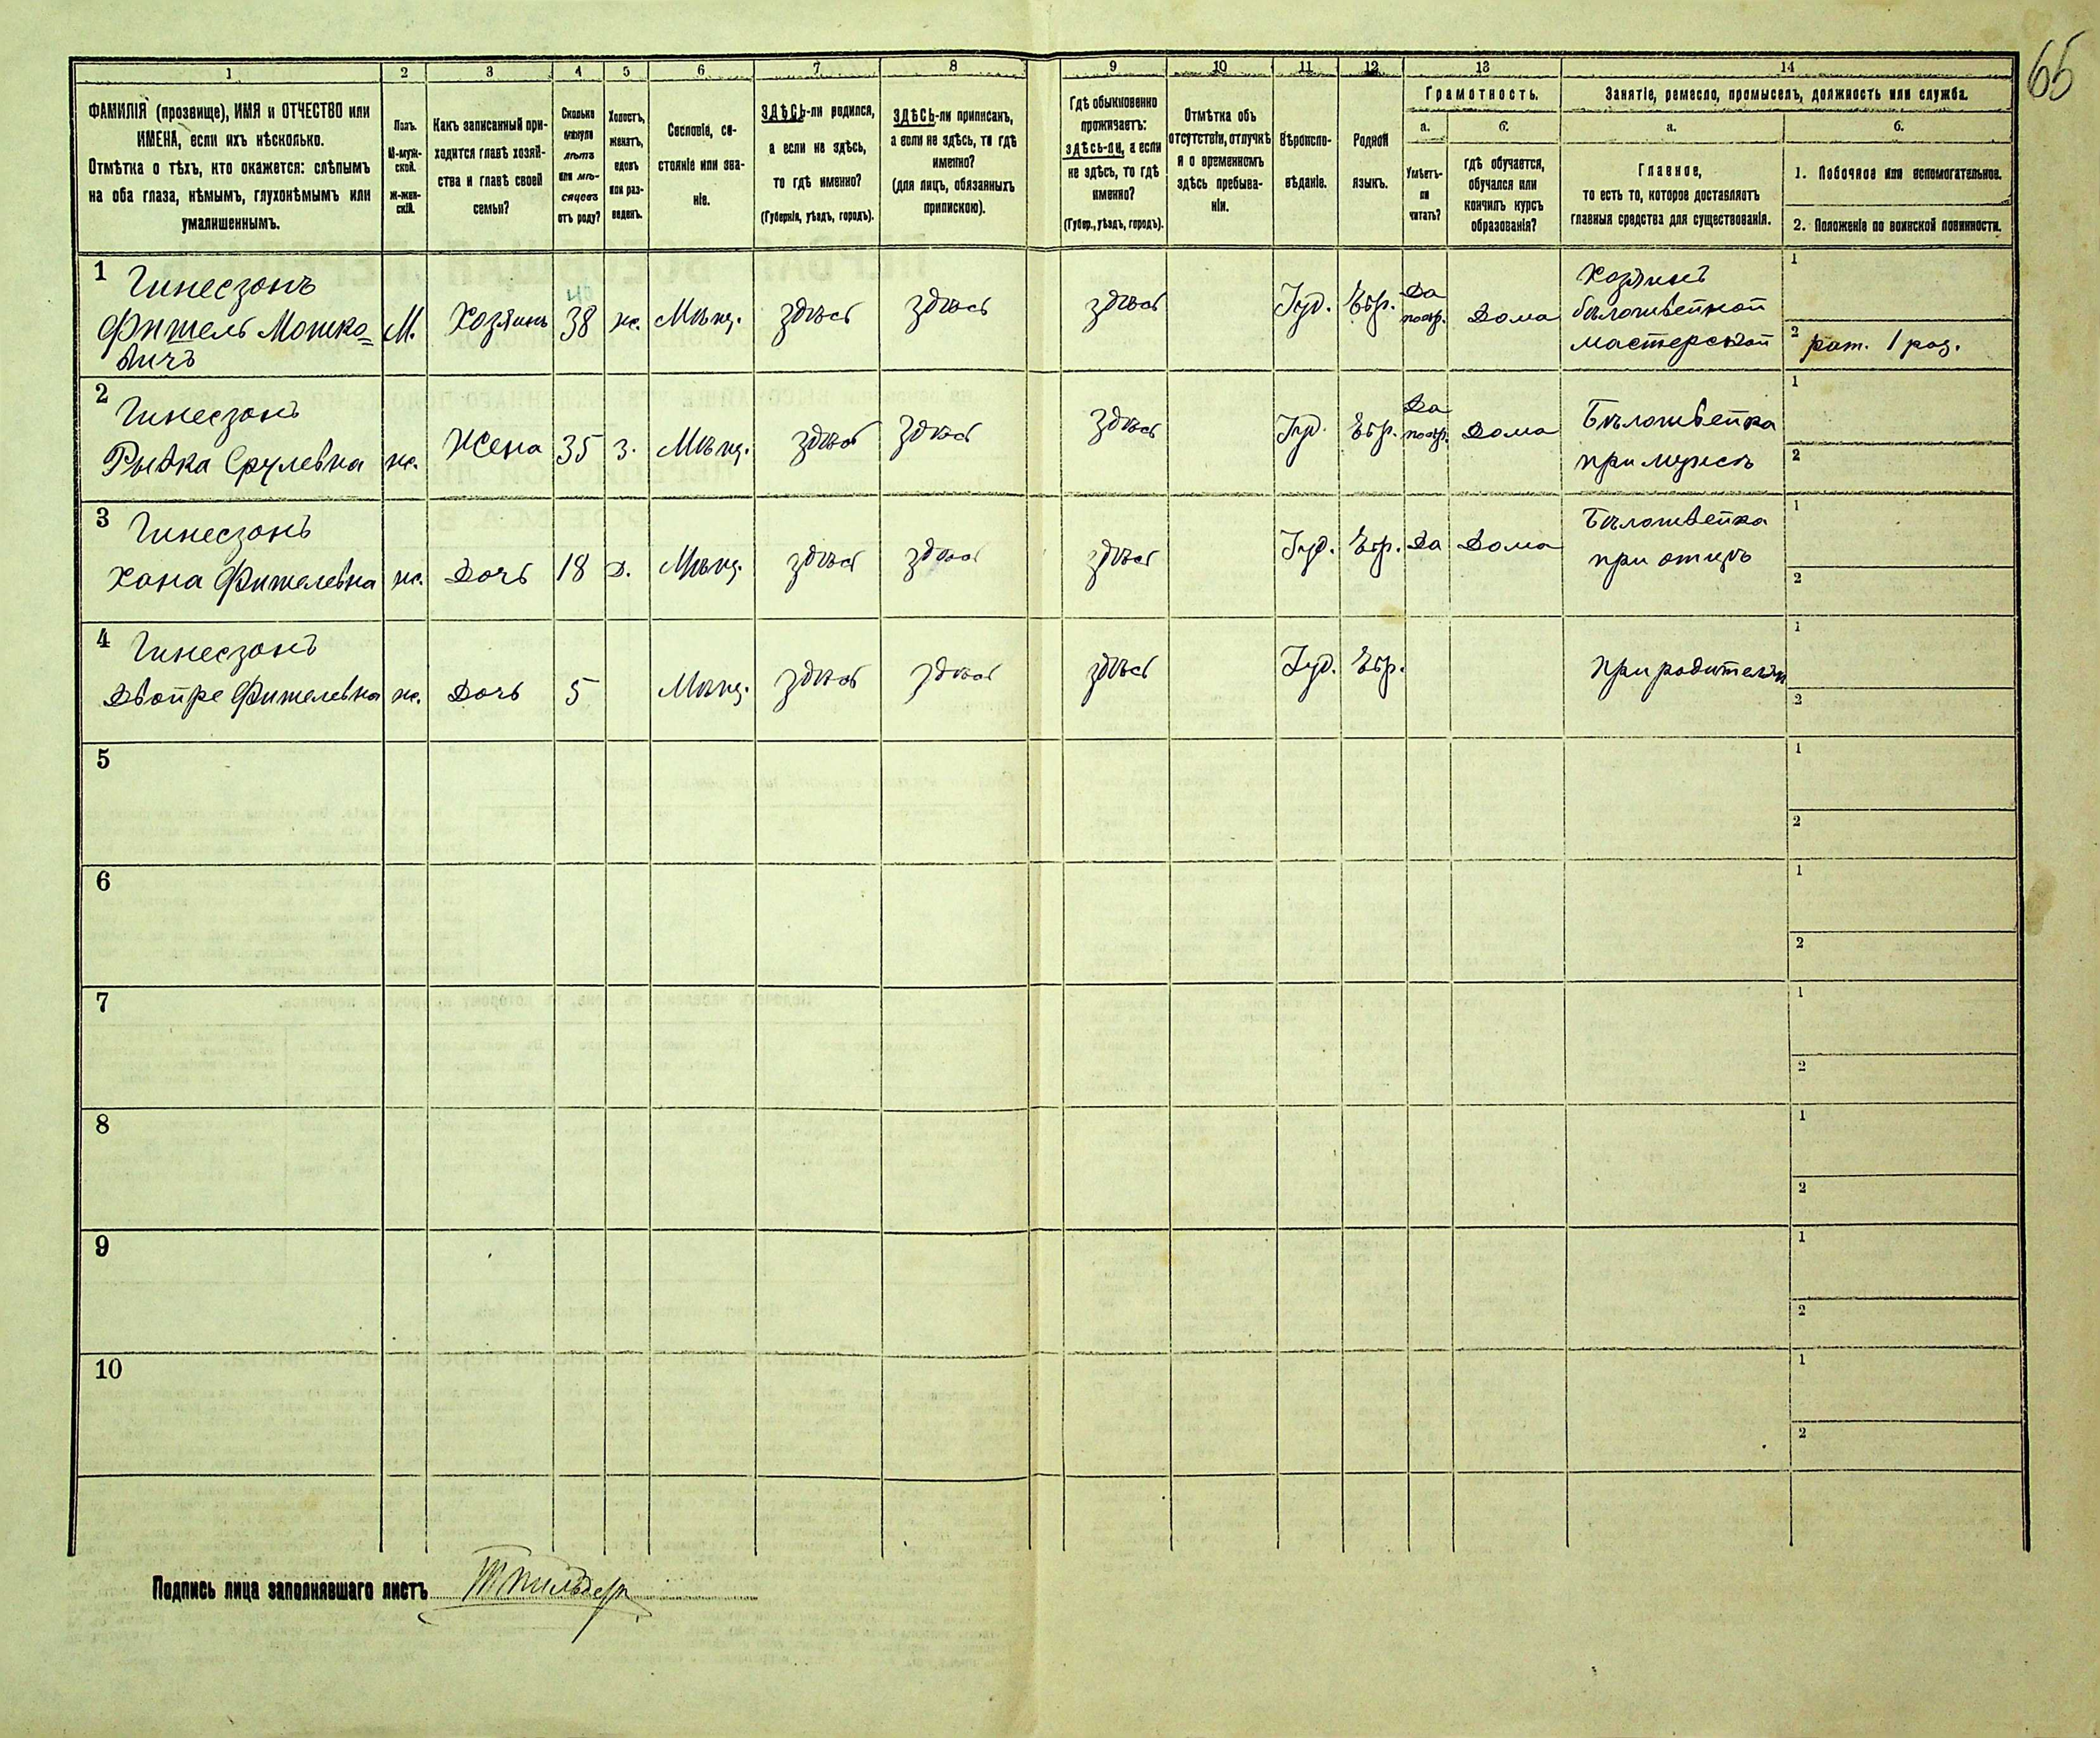 65
1 2 3 4 5 6 7 8 9 10 11 12 13 14
ФАМИЛІЯ (прозвище), ИМЯ и ОТЧЕСТВО или
ИМЕНА, если ихъ нѣсколько.
Отмѣтка о тѣхъ, кто окажется: слѣпымъ
на оба глаза, нѣмымъ, глухонѣмымъ или
умалишеннымъ.
Полъ.
М-муж-
ской.
ж-жен-
скій.
Какъ записанный при-
ходится главѣ хозяй-
ства и главѣ своей
семьи?
Сколько
минуло
лѣтъ
или мѣ-
сяцевъ
отъ роду?
Холостъ,
женатъ,
вдовъ
или раз-
веденъ.
Сословіе, со-
стояніе или зва-
ніе.
ЗДѢСЬ-ли родился,
а если не здѣсь,
то гдѣ именно?
(Губернія, уѣздъ, городъ).
ЗДѢСЬ-ли приписанъ,
а если не здѣсь, то гдѣ
именно?
(для лицъ, обязанныхъ
припискою).
Гдѣ обыкновенно
проживаетъ:
ЗДѢСЬ-ли, а если
не здѣсь, то гдѣ
именно?
(Губер., уѣздъ, городъ).
Отмѣтка объ
отсутствіи, отлучкѣ
и о временномъ
здѣсь пребыва-
ніи.
Вѣроиспо-
вѣданіе.
Родной
языкъ.
Грамотность.
а.
Умѣетъ-
ли
читать?
б.
гдѣ обучается,
обучался или
кончилъ курсъ
образованія?
Занятіе, ремесло, промыселъ, должность или служба.
а.
Главное,
то есть то, которое доставляетъ
главныя средства для существованія.
б.
1. Побочное или вспомогательное.
2. Положеніе по воинской повинности.
1 Гинесзонъ
Фишель Мошко=
вичъ
М. Хозяинъ 38 ж. Мѣщ. здѣсь здѣсь здѣсь Іуд. Евр. Да Дома
Хозяинъ
бѣлошвейной
мастерской
1
2 рат. 1 раз.
2 Гинесзонъ
Рывка Срулевна ж. Жена 35 З. Мѣщ. здѣсь здѣсь здѣсь Іуд. Евр. Да Дома
Бѣлошвейка
при мужѣ
1
2
3 Гинесзонъ
Хана Фишелевна ж. Дочь 18 Д. Мѣщ. здѣсь здѣсь здѣсь Іуд. Евр. Да Дома
Бѣлошвейка
при отцѣ
1
2
4 Гинесзонъ
Двойре Фишелевна ж. Дочь 5 Мѣщ. здѣсь здѣсь здѣсь Іуд. Евр. при родителяхъ
1
2
5
1
2
6
1
2
7
1
2
8
1
2
9
1
2
10
1
2
Подпись лица заполнявшаго листъ